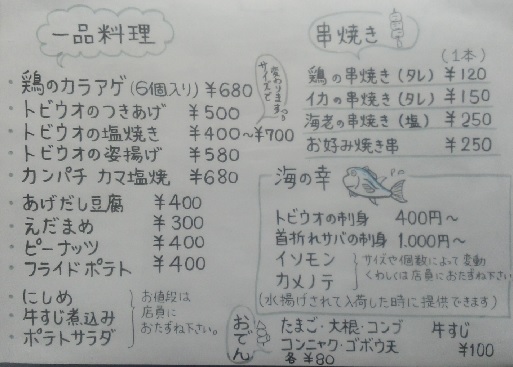 一品料理
・鶏のカラアゲ(6個入り) ¥680
・トビウオのつきあげ ¥500
・トビウオの塩焼き ¥400～¥700
サイズで変わりますっ
・トビウオの姿揚げ ¥580
・カンパチ カマ塩焼 ¥680
・あげだし豆腐 ¥400
・えだまめ ¥300
・ピーナッツ ¥400
・フライドポテト ¥400
・にしめ
・牛すじ煮込み
・ポテトサラダ
お値段は
店員に
おたずね下さい。
串焼き
(1本)
鶏の串焼き(タレ) ¥120
イカの串焼き(タレ) ¥150
海老の串焼き(塩) ¥250
お好み焼き串 ¥250
海の幸
トビウオの刺身 400円～
首折れサバの刺身 1.000円～
イソモン
カメノテ
サイズや個数によって変動
くわしくは店員におたずね下さい
(水揚げされて入荷した時に提供できます)
おでん
たまご・大根・コンブ
コンニャク・ゴボウ天
各¥80
牛すじ
¥100